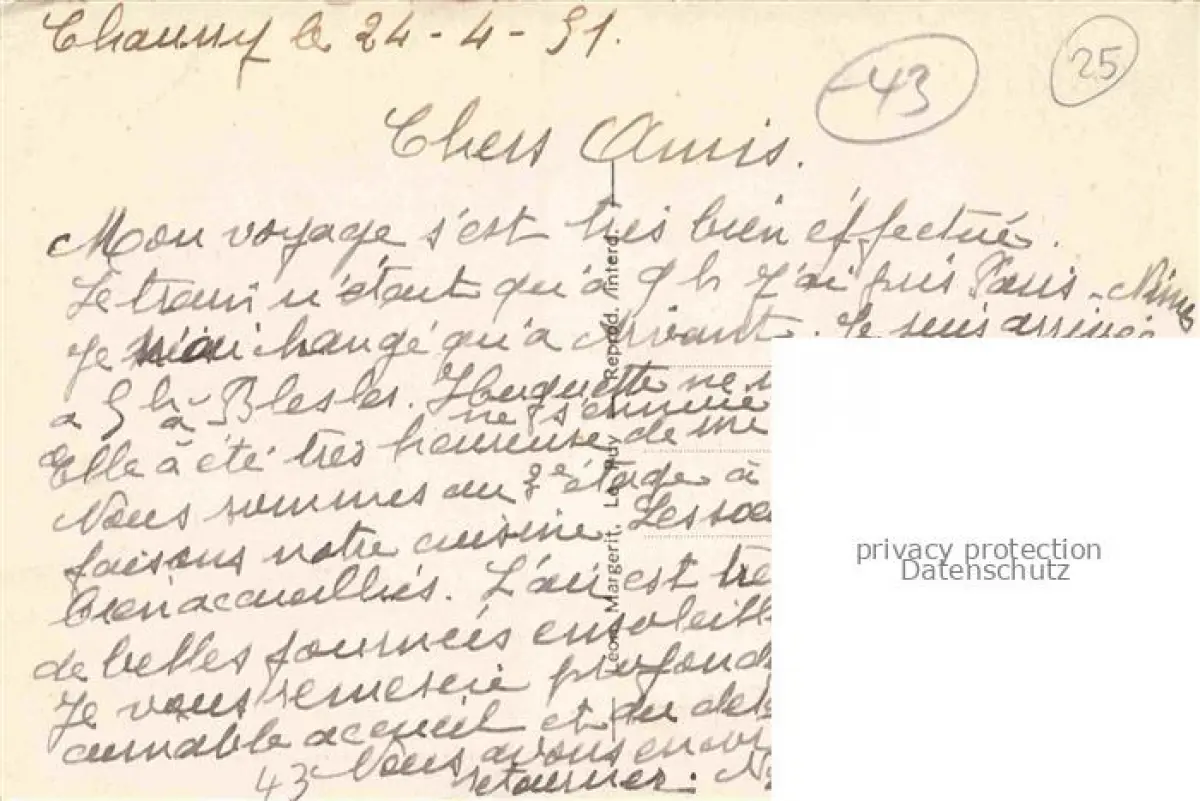 le 24-4-51.
-43
25
Chers Amis.
Mon voyage s'est très bien effectué.
Le train n'étant qu'à 9 h j'ai pris Paris - Nimes
Je n'ai changé qu'a Arvant. Je suis arrivée
a 5 h a Blesle. Huguette ne
ne s'ennuie
Elle à été très heureuse de me
Nous sommes au 2e étage à
faisons notre cuisine. Les soe
bien accueillies. L'air est trè
de belles journées ensoleill
Je vous remercie profond
aimable accueil et du
Nous avons
43
retourner. N
Léon Margerit, Le Puy Reprod. interd.
privacy protection
Datenschutz